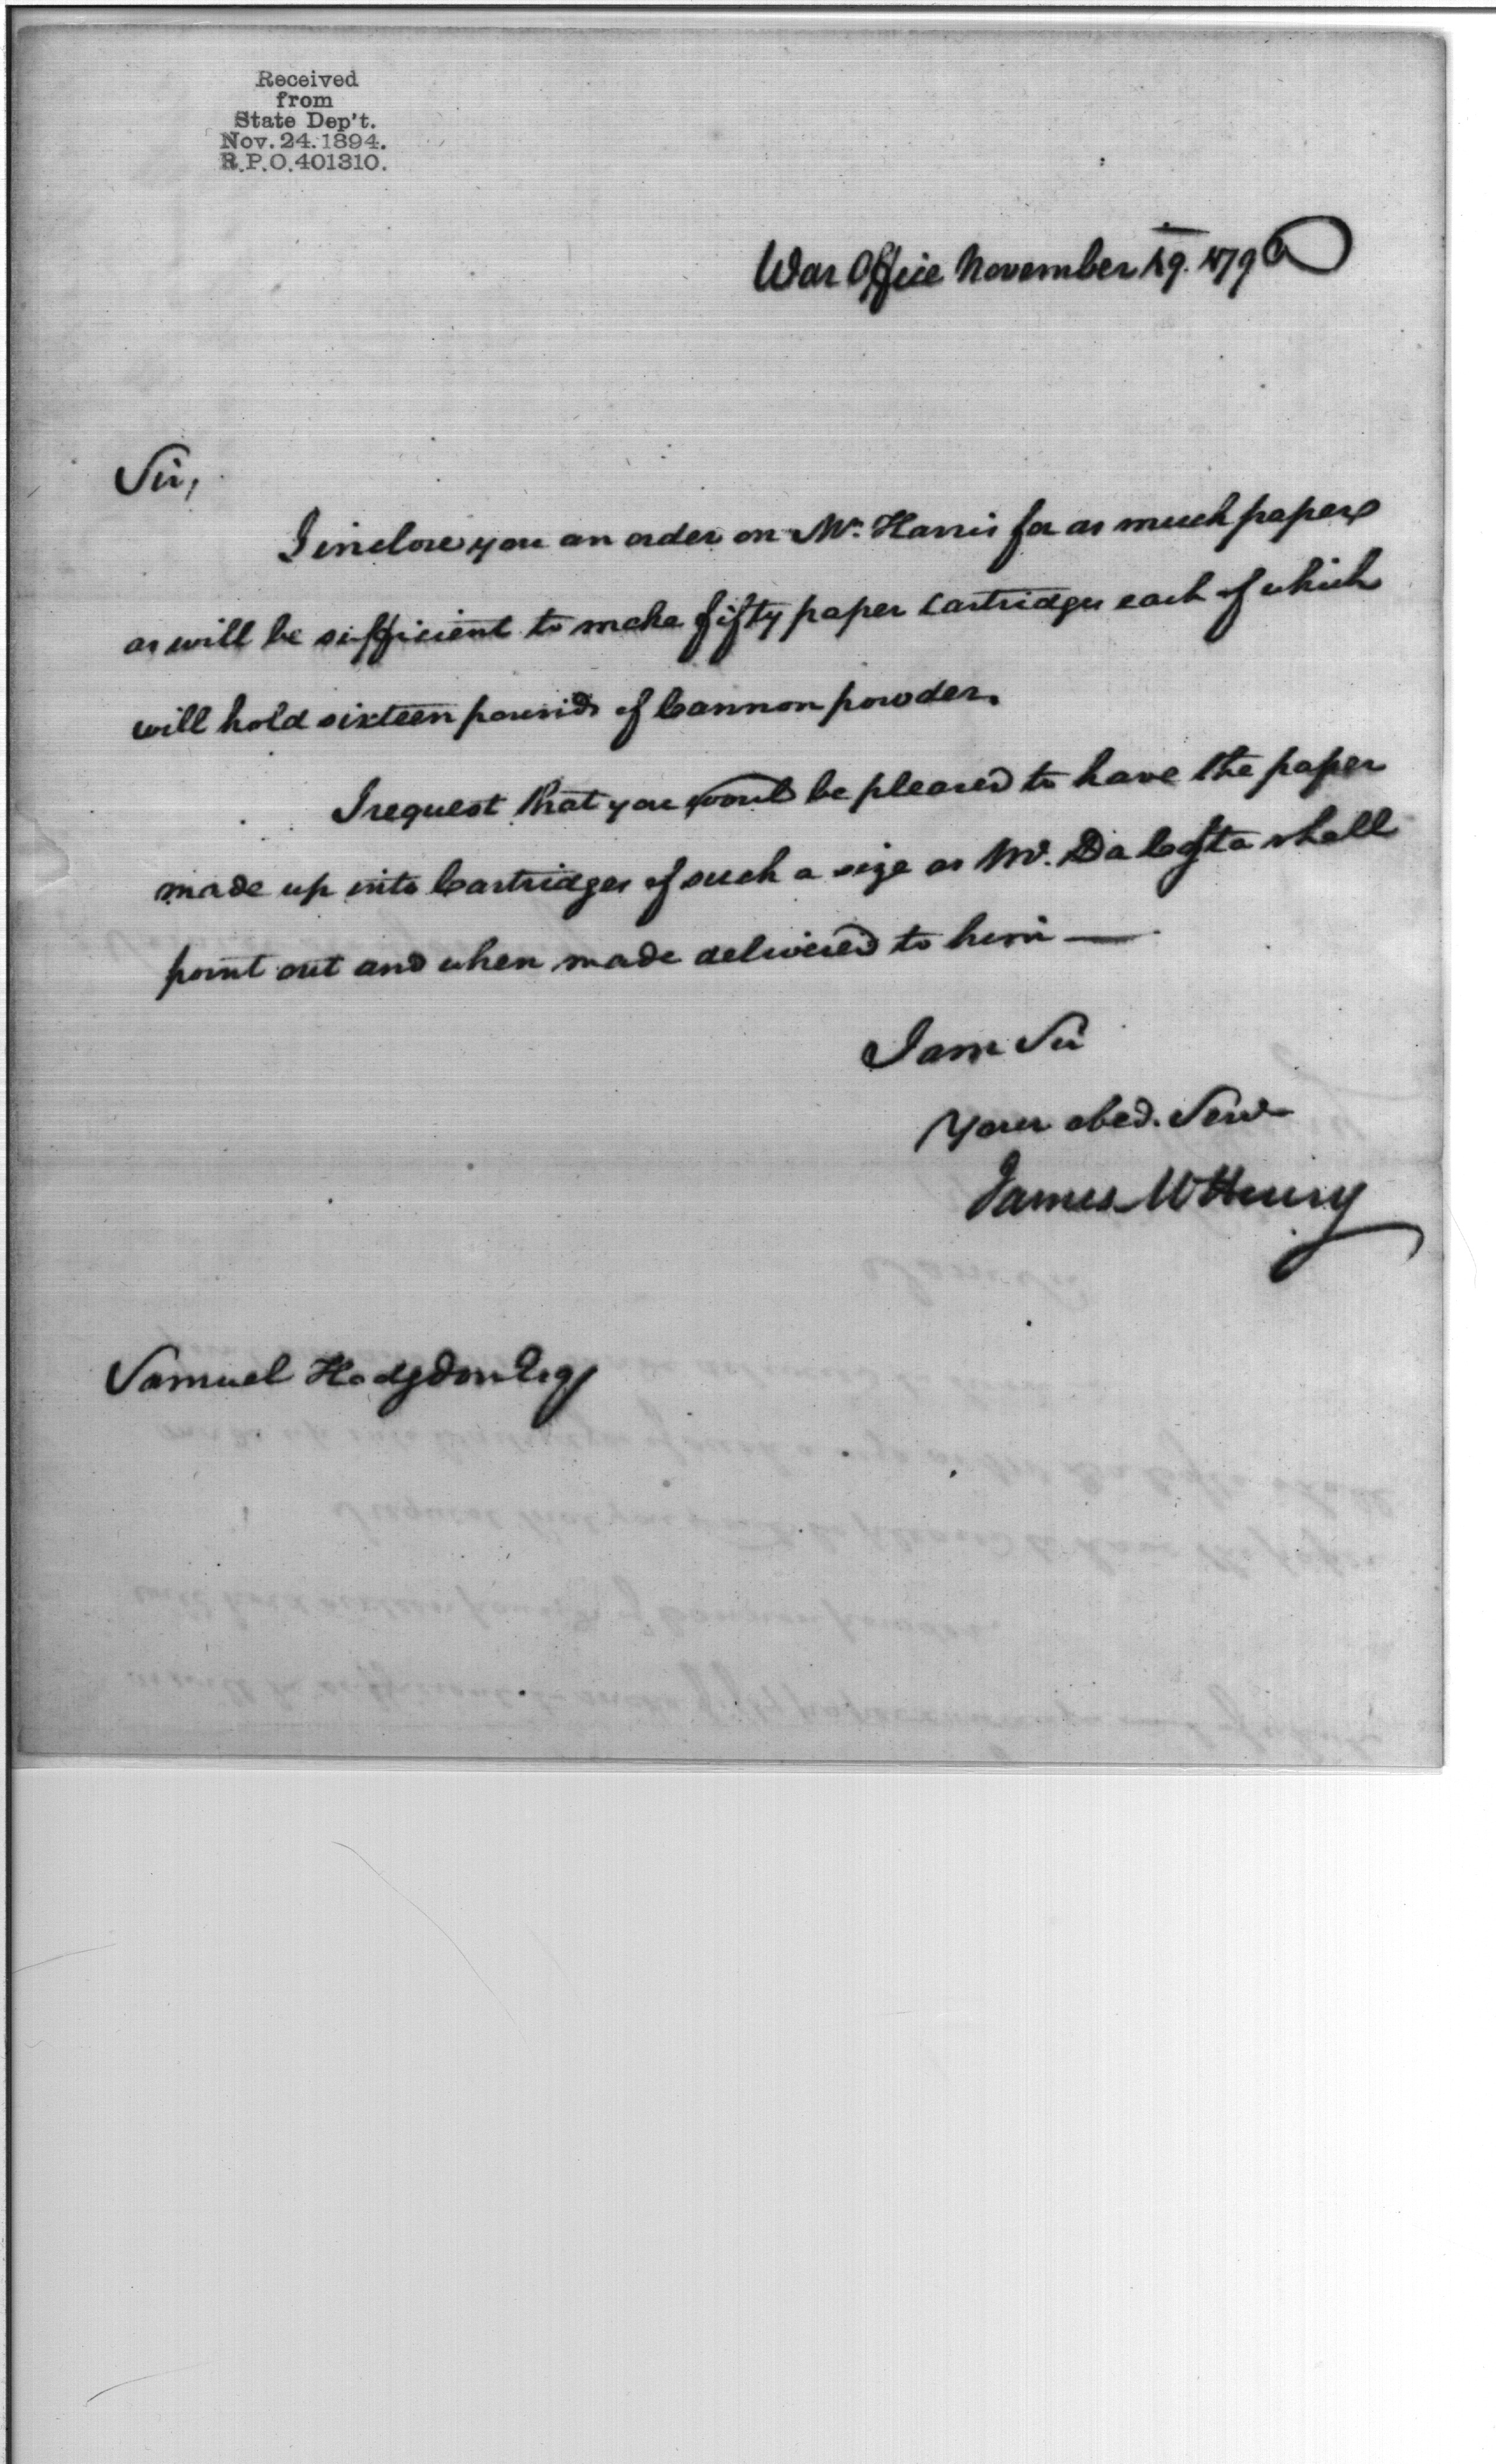 Received
from
State Dep't.
Nov. 24. 1894.
R.P.O. 401310.
War Office November 19. 1796
Sir,
I inclose you an order on Mr. Harris for as much paper
as will be sufficient to make fifty paper Cartridges each of which
will hold sixteen pounds of Cannon powder.
I request that you would be pleased to have the paper
made up into Cartridges of such a size as Mr. Da Costa shall
point out and when made delivered to him —
I am Sir
Your obed. Serv
James McHenry
Samuel Hodgdon Esq